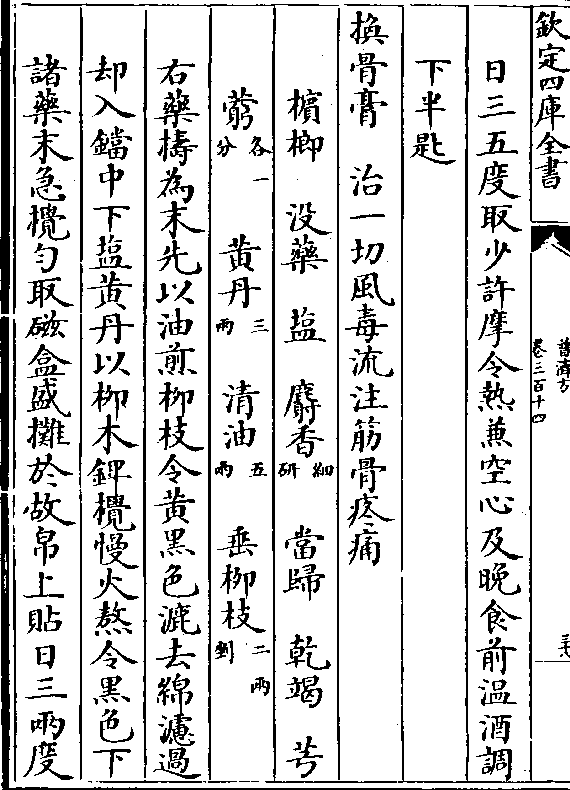 欽定四庫全書
普濟方
卷三百十四
日三五度取少許摩令熱兼空心及晚食前温酒調
下半匙
換骨膏　治一切風毒流注筋骨疼痛
檳榔　没藥　盐　麝香細研　當歸　乾蝎　芎
藭各一分　黄丹三兩　清油五兩　垂柳枝二兩剉
右藥擣為末先以油煎柳枝令黄黒色漉去綿濾過
却入鐺中下盐黄丹以柳木鎞攪慢火熬令黒色下
諸藥末急攪勻取磁盒盛攤於故帛上貼日三兩度